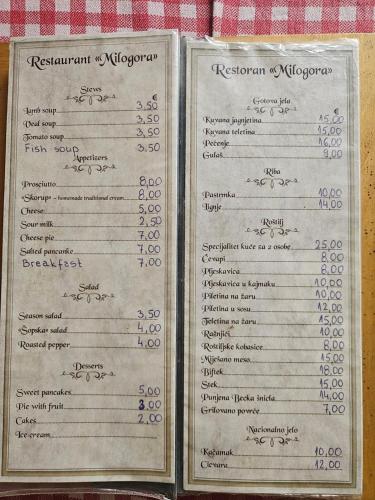 Restaurant «Milogora»
Stews
€
Lamb soup 3,50
Veal soup 3,50
Tomato soup 3,50
Fish soup 3.50
Appetizers
Prosciutto 8,00
«Skorup» - homemade traditional cream 8,00
Cheese 5,00
Sour milk 2,50
Cheese pie 7,00
Salted pancake 7,00
Breakfast 7,00
Salad
Season salad 3,50
«Šopska» salad 4,00
Roasted pepper 4,00
Desserts
Sweet pancakes 5,00
Pie with fruit 3,00
Cakes 2,00
Ice cream
Restoran «Milogora»
Gotova jela
€
Kuvana jagnjetina 15,00
Kuvana teletina 15,00
Pečenje 16,00
Gulaš 9,00
Riba
Pastrmka 10,00
Lignje 14,00
Roštilj
Specijalitet kuće za 2 osobe 25,00
Ćevapi 8,00
Pljeskavica 8,00
Pljeskavica u kajmaku 10,00
Piletina na žaru 10,00
Piletina u sosu 12,00
Teletina na žaru 15,00
Ražnjići 10,00
Roštiljske kobasice 8,00
Miješano meso 15,00
Biftek 18,00
Stek 15,00
Punjena Bečka šnicla 14,00
Grilovano povrće 7,00
Nacionalno jelo
Kačamak 10,00
Cicvara 12,00